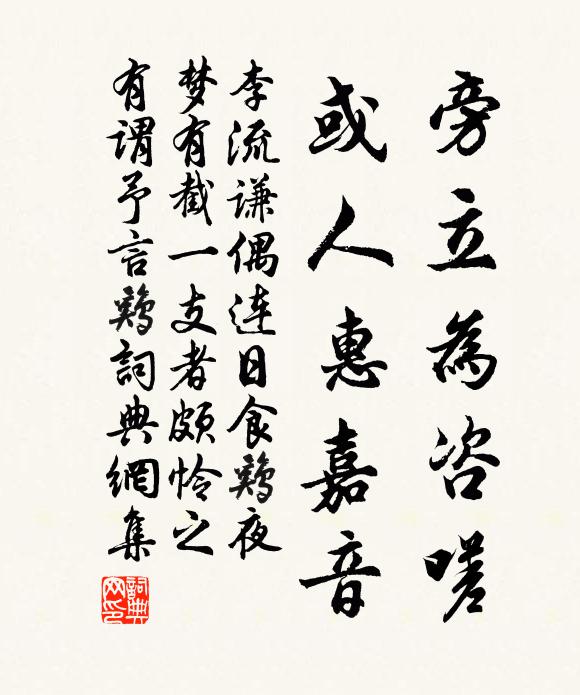 旁立為咨嗟
或人惠嘉音
李流谦偶连日食鶏夜
梦有截一支者颇怜之
有谓予言鶏詞典網集
詞典网印